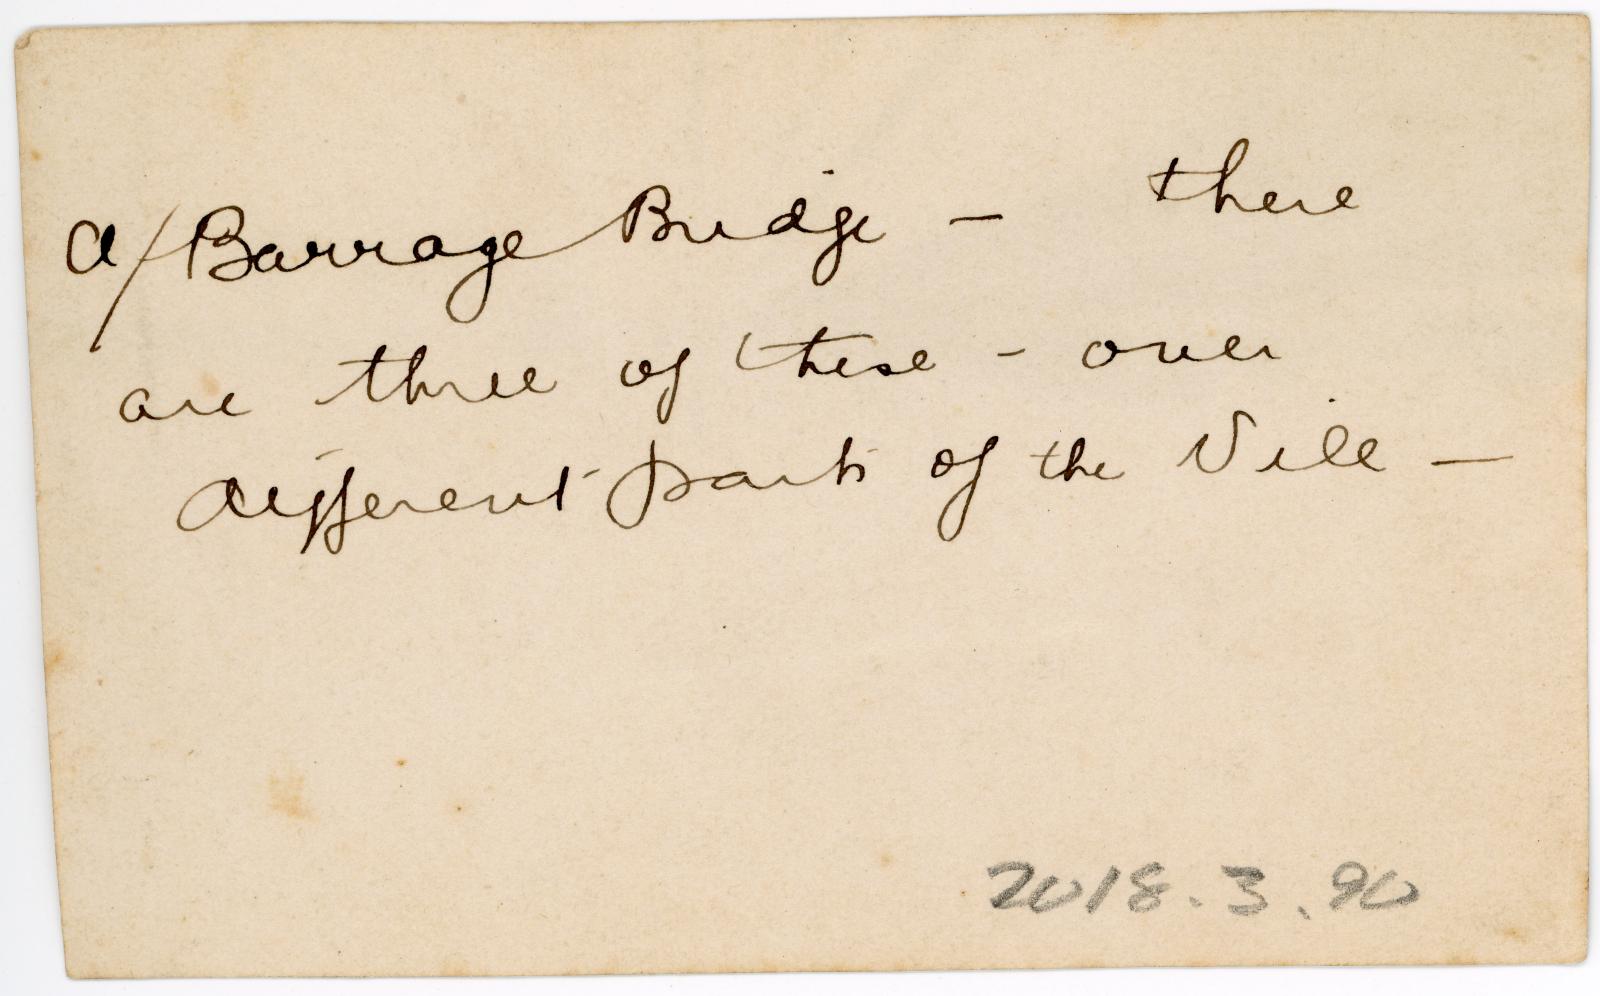 a/Barrage Bridge - there
are three of these - over
different parts of the Nile -
2018.3.90